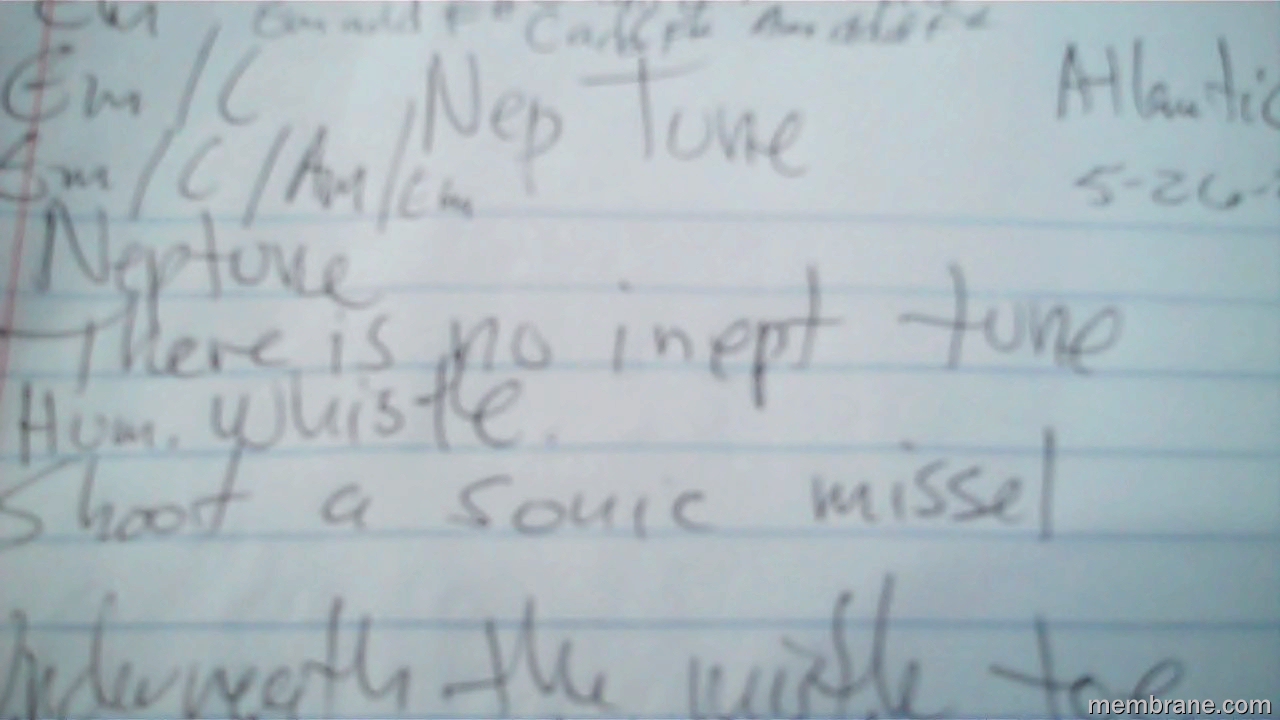 Em Emadd F# Cadd F# Am add F#
Em / C Nep Tune Atlantic
Em / C / Am / Em 5-26-
Neptune
There is no inept tune
Hum. Whistle.
Shoot a sonic missel
Underneath the mistle toe
membrane.com